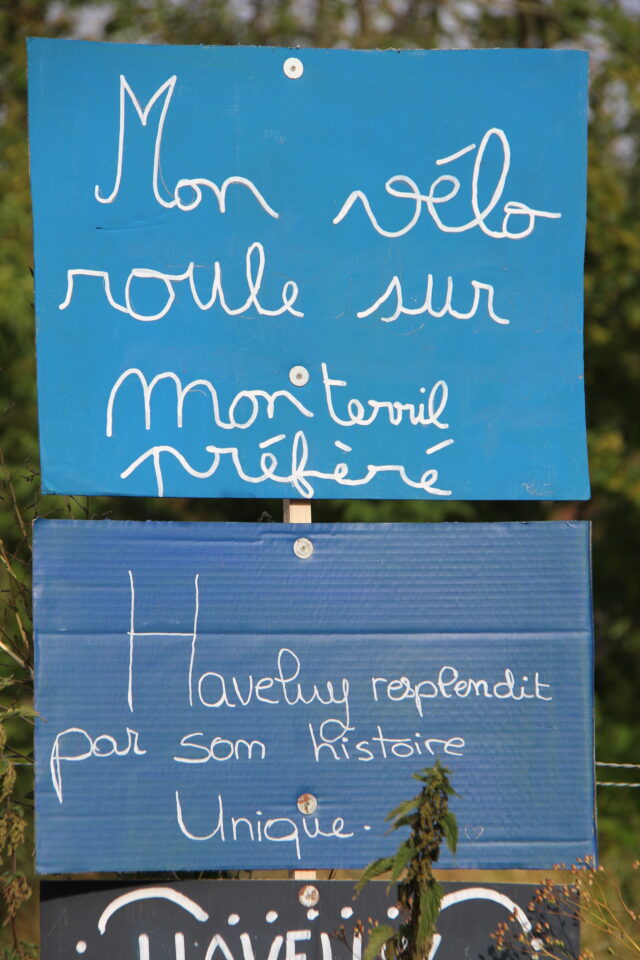 Mon vélo
roule sur
mon terril
préféré
Haveluy resplendit
par son histoire
Unique.
HAVELUY